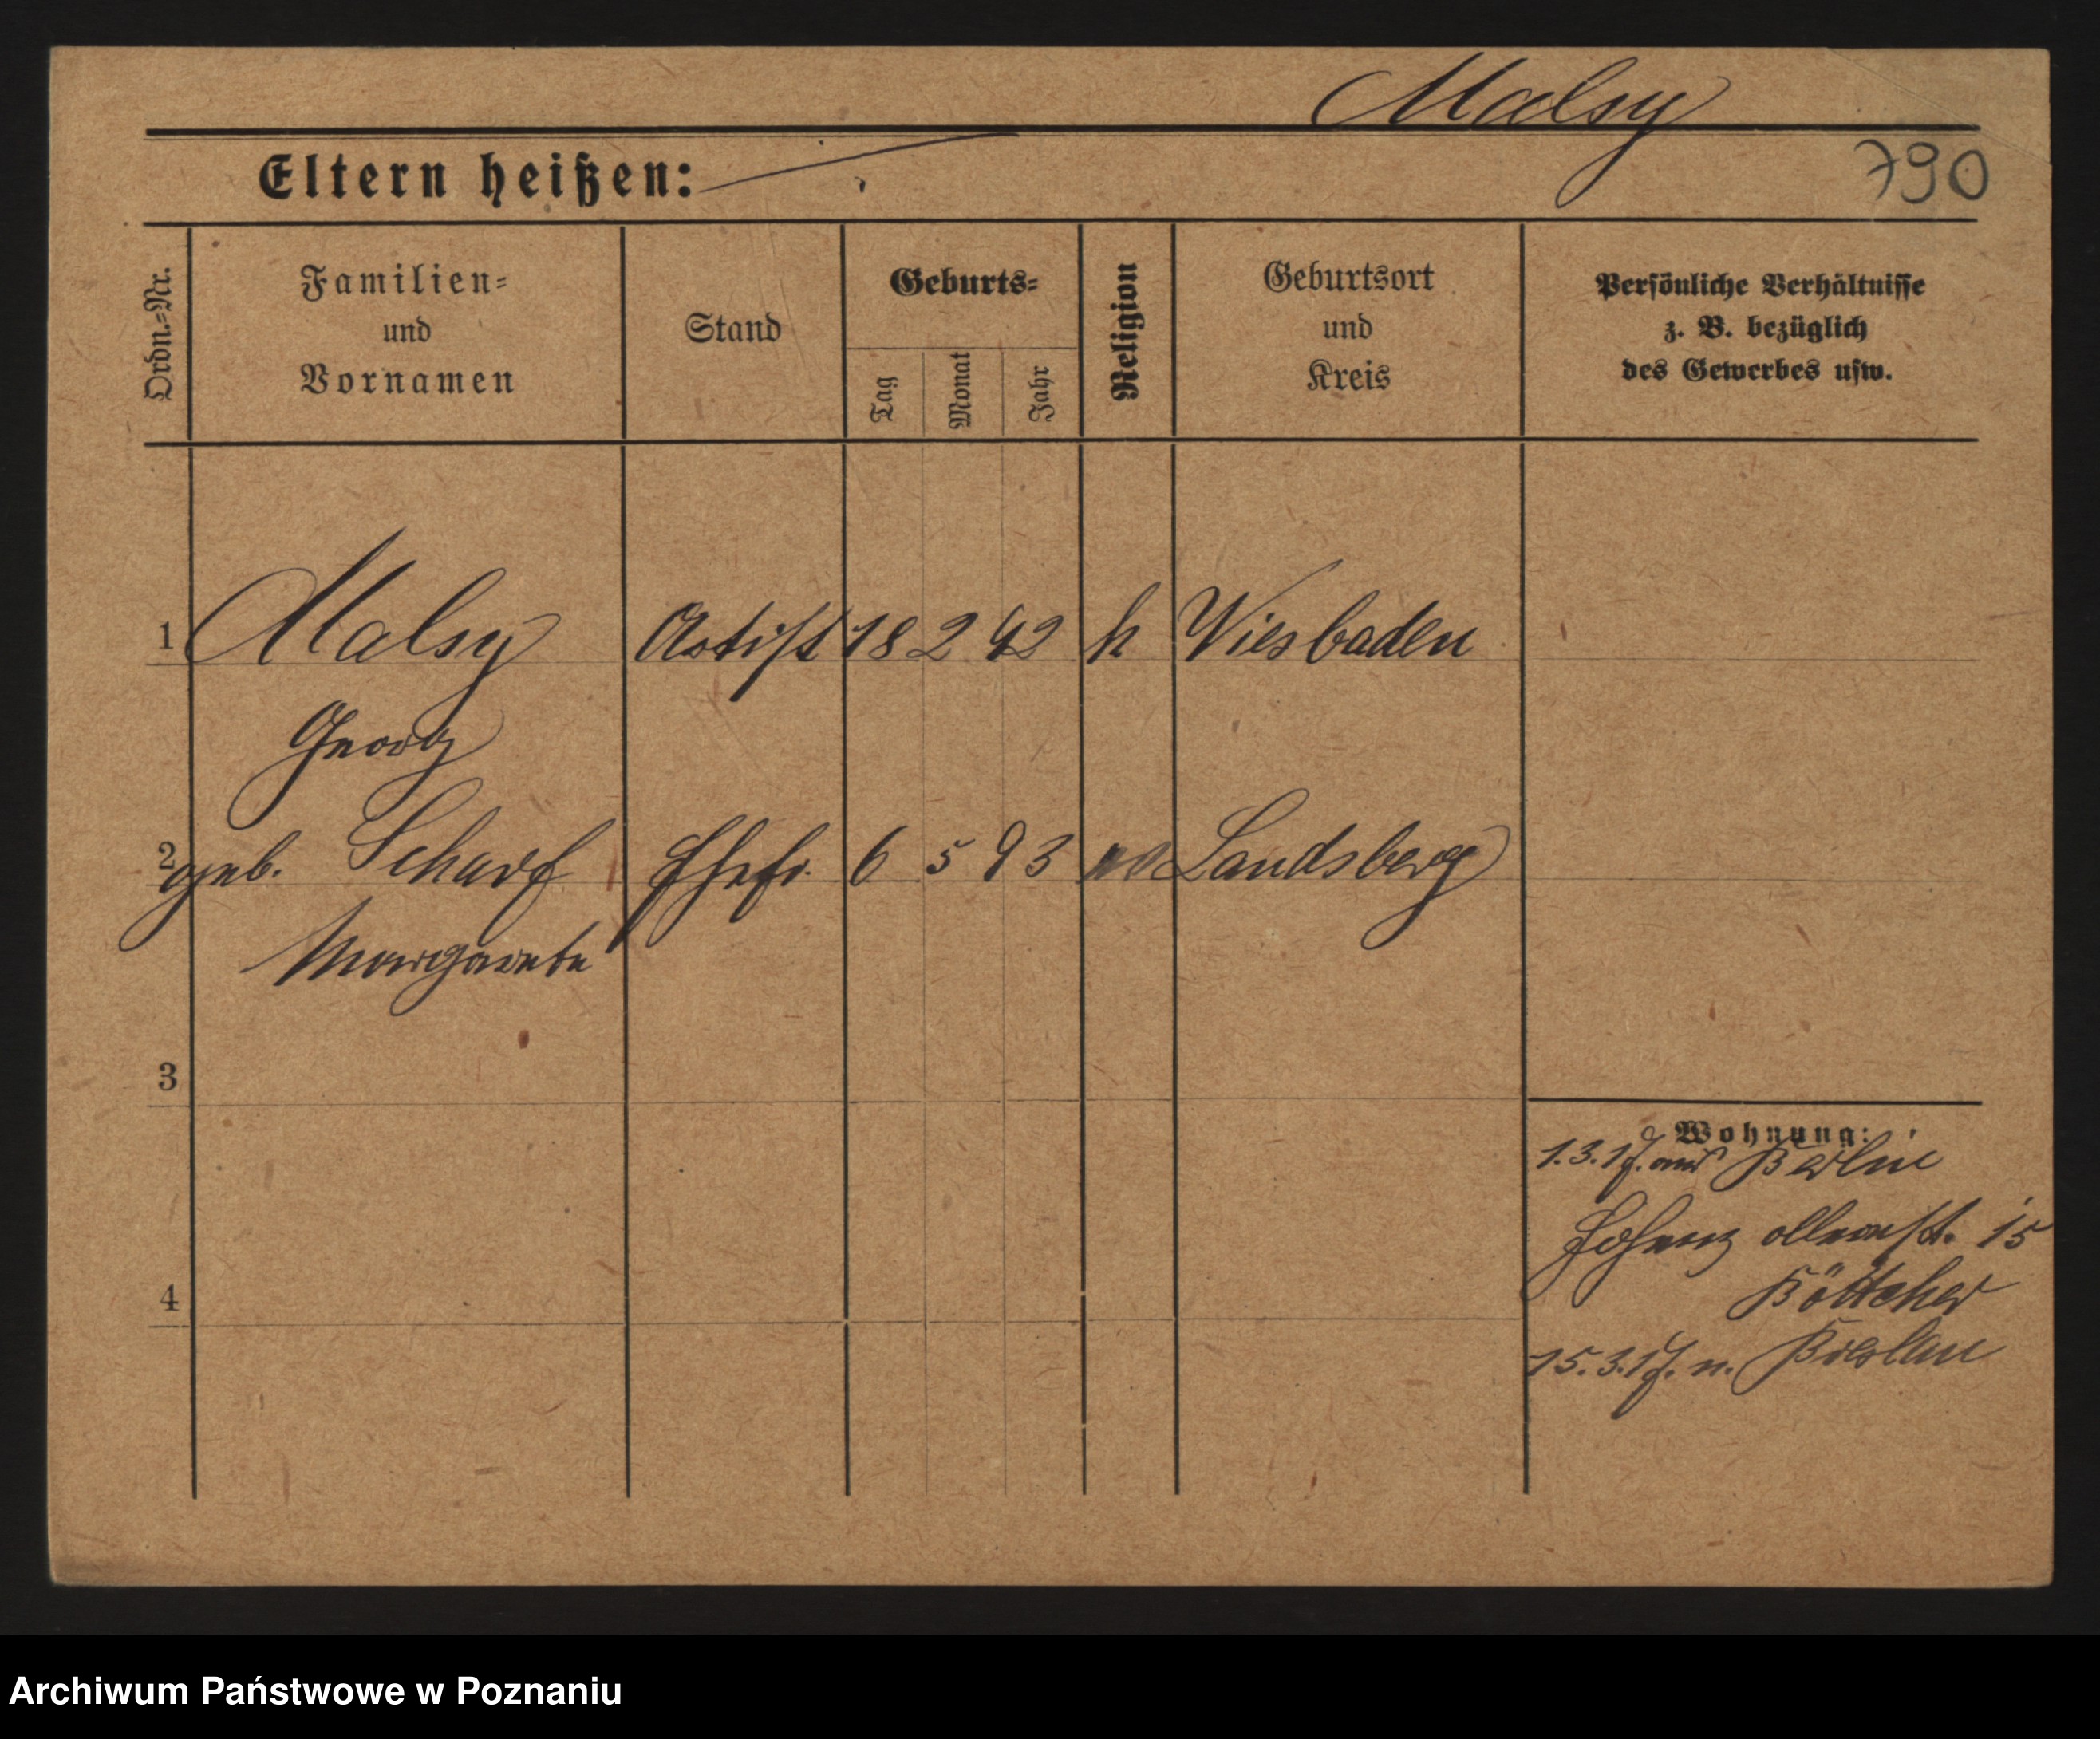 Malsy
790
Eltern heißen:
Ordn.-Nr.
Familien- und Vornamen
Stand
Geburts-
Tag
Monat
Jahr
Religion
Geburtsort und Kreis
Persönliche Verhältnisse
z. B. bezüglich
des Gewerbes usw.
1 Malsy Artist 18 2 92 k Wiesbaden
Georg
2 geb. Scharf Ehefr. 6 5 93 Landsberg
Margarete
3
4
Wohnung:
1.3.17. aus Berlin
Hohenzollernst. 15
Böttcher
15.3.17. n. Breslau
Archiwum Państwowe w Poznaniu